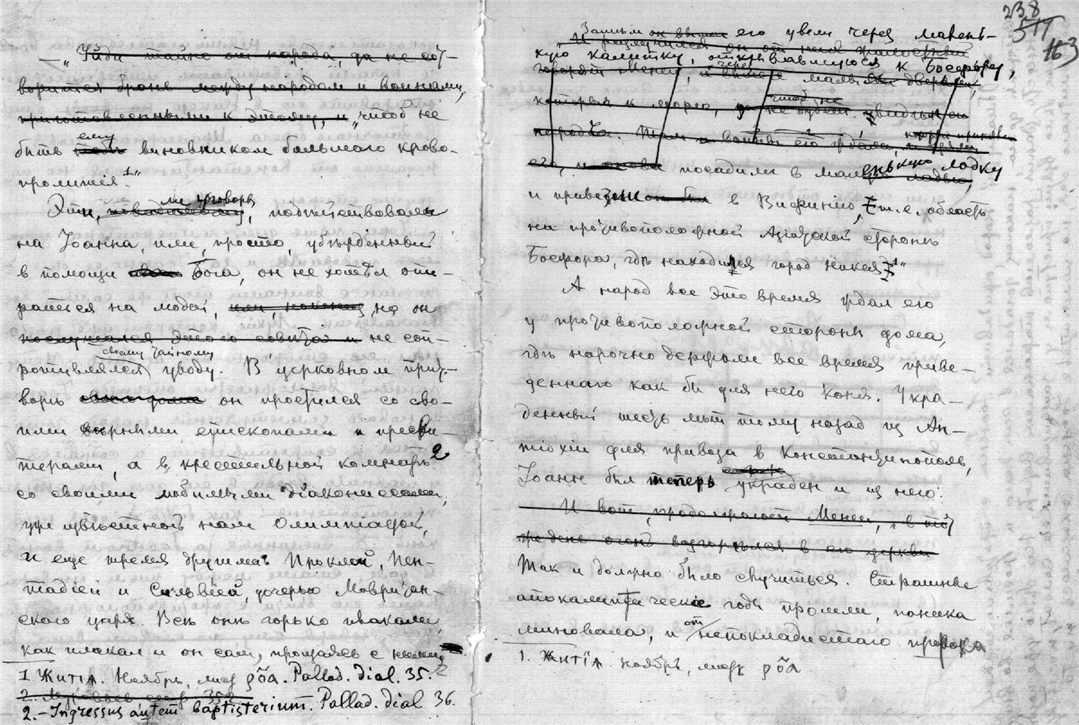 „Уйди тайно отъ народа, да не со-
творится брань между народомъ и воинами,
приготовленными къ этому, и „чтоб не
быть ему виновникомъ большого крово-
пролитія.¹"
Эти ли уговоры, подѣйствовали
на Іоанна, или, просто, убѣжденный
в помощи Бога, он не хотѣл опи-
раться на людей, но он
послушался этого совѣта и не соп-
ротивлялся своему тайному уводу. В церковном прит-
ворѣ он простился со сво-
ими вѣрными епископами и пресви-
терами, а в крестильной комнатѣ²
со своими любимыми діаконисами,
уже извѣстной нам Олимпіадой,
и еще тремя другими: Проклой, Пен-
тадіей и Сальвіей, дочерью Мавритан-
скаго царя. Всѣ онѣ горько плакали,
как плакал и он сам, прощаясь с ними.
1 Житія. Ноябрь, лист роа. Pallad. dial. 35.
2.- Ingressus autem baptisterium. Pallad. dial 36.
238
577
163
Затѣм его увели через малень-
кую калитку, открывавшуюся к Босфору,
посадили в маленькую лодку
и привезли в Вифинію, т.е. область
на противоположной Азіатской сторонѣ
Босфора, гдѣ находился город Никея.¹"
А народ все это время ждал его
у противоположной стороны дома,
гдѣ нарочно держали все время приве-
деннаго как бы для него коня. Укра-
денный шесть лѣт тому назад из Ан-
тіохіи для привоза в Константинополь,
Іоанн был теперь украден и из него.
И вот, продолжают Менеи, „в тот
же день огонь возгорѣлся в его церкви
Так и должно было случиться. Страшные
апокалиптическіе годы прошли, паника
миновала, и от непокладистаго пророка
1. Житія. Ноябрь, лист роа